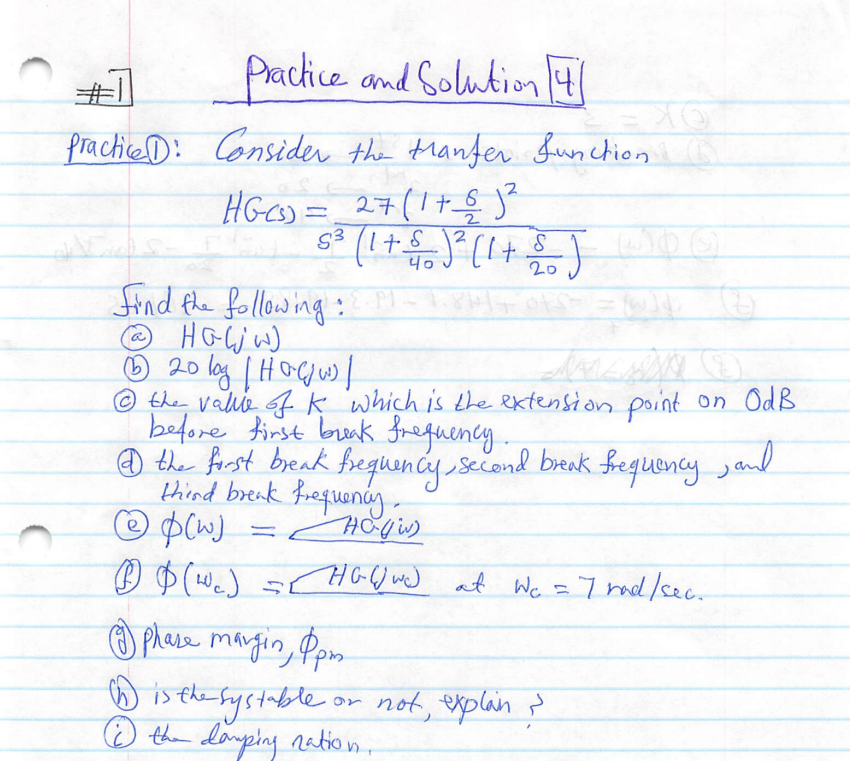 #1
Practice and Solution 4
Practice ①: Consider the tranfer function
HG(s) = 27(1 + s/2)² / s³(1 + s/40)²(1 + s/20)
Find the following:
ⓐ HG(jw)
ⓑ 20 log |HG(jw)|
ⓒ the value of K which is the extension point on 0dB
before first break frequency.
ⓓ the first break frequency, second break frequency, and
third break frequency.
ⓔ ϕ(w) = ∠HG(jw)
ⓕ ϕ(wc) = ∠HG(jwc) at wc = 7 rad/sec.
ⓖ phase margin, ϕpm
ⓗ is the systable or not, explain?
ⓘ the damping ration.